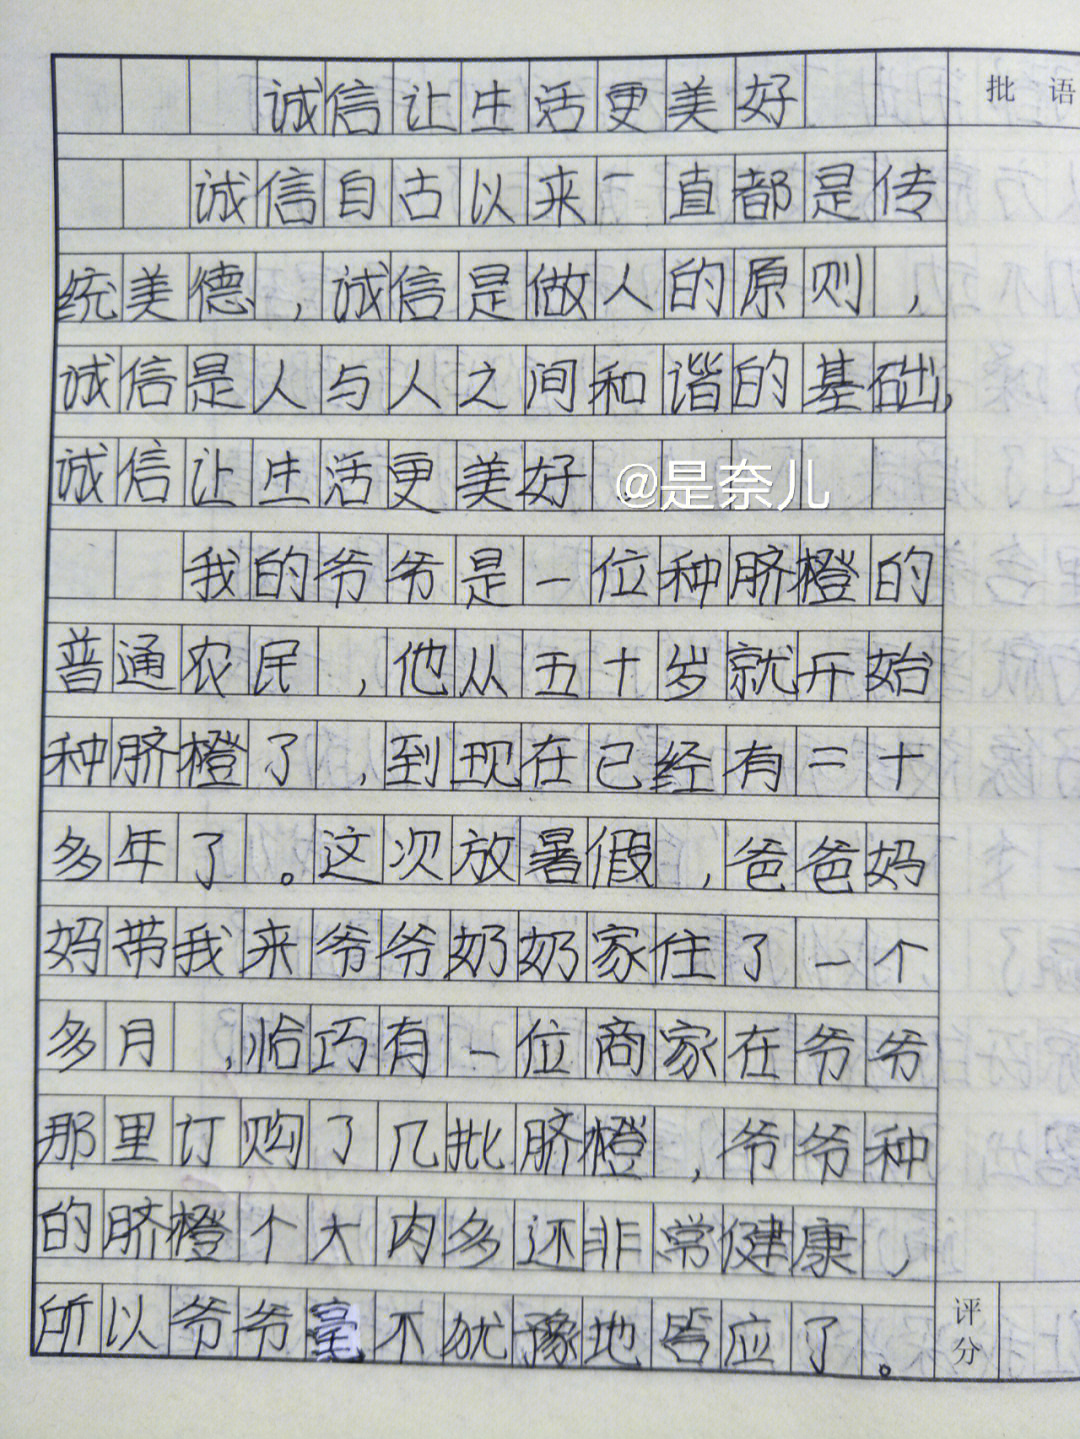 诚信让生活更美好
批语
诚信自古以来一直都是传
统美德，诚信是做人的原则，
诚信是人与人之间和谐的基础，
诚信让生活更美好
@是奈儿
我的爷爷是一位种脐橙的
普通农民，他从五十岁就开始
种脐橙了，到现在已经有二十
多年了。这次放暑假，爸爸妈
妈带我来爷爷奶奶家住了一个
多月，恰巧有一位商家在爷爷
那里订购了几批脐橙，爷爷种
的脐橙个大肉多还非常健康，
所以爷爷毫不犹豫地答应了。
评分